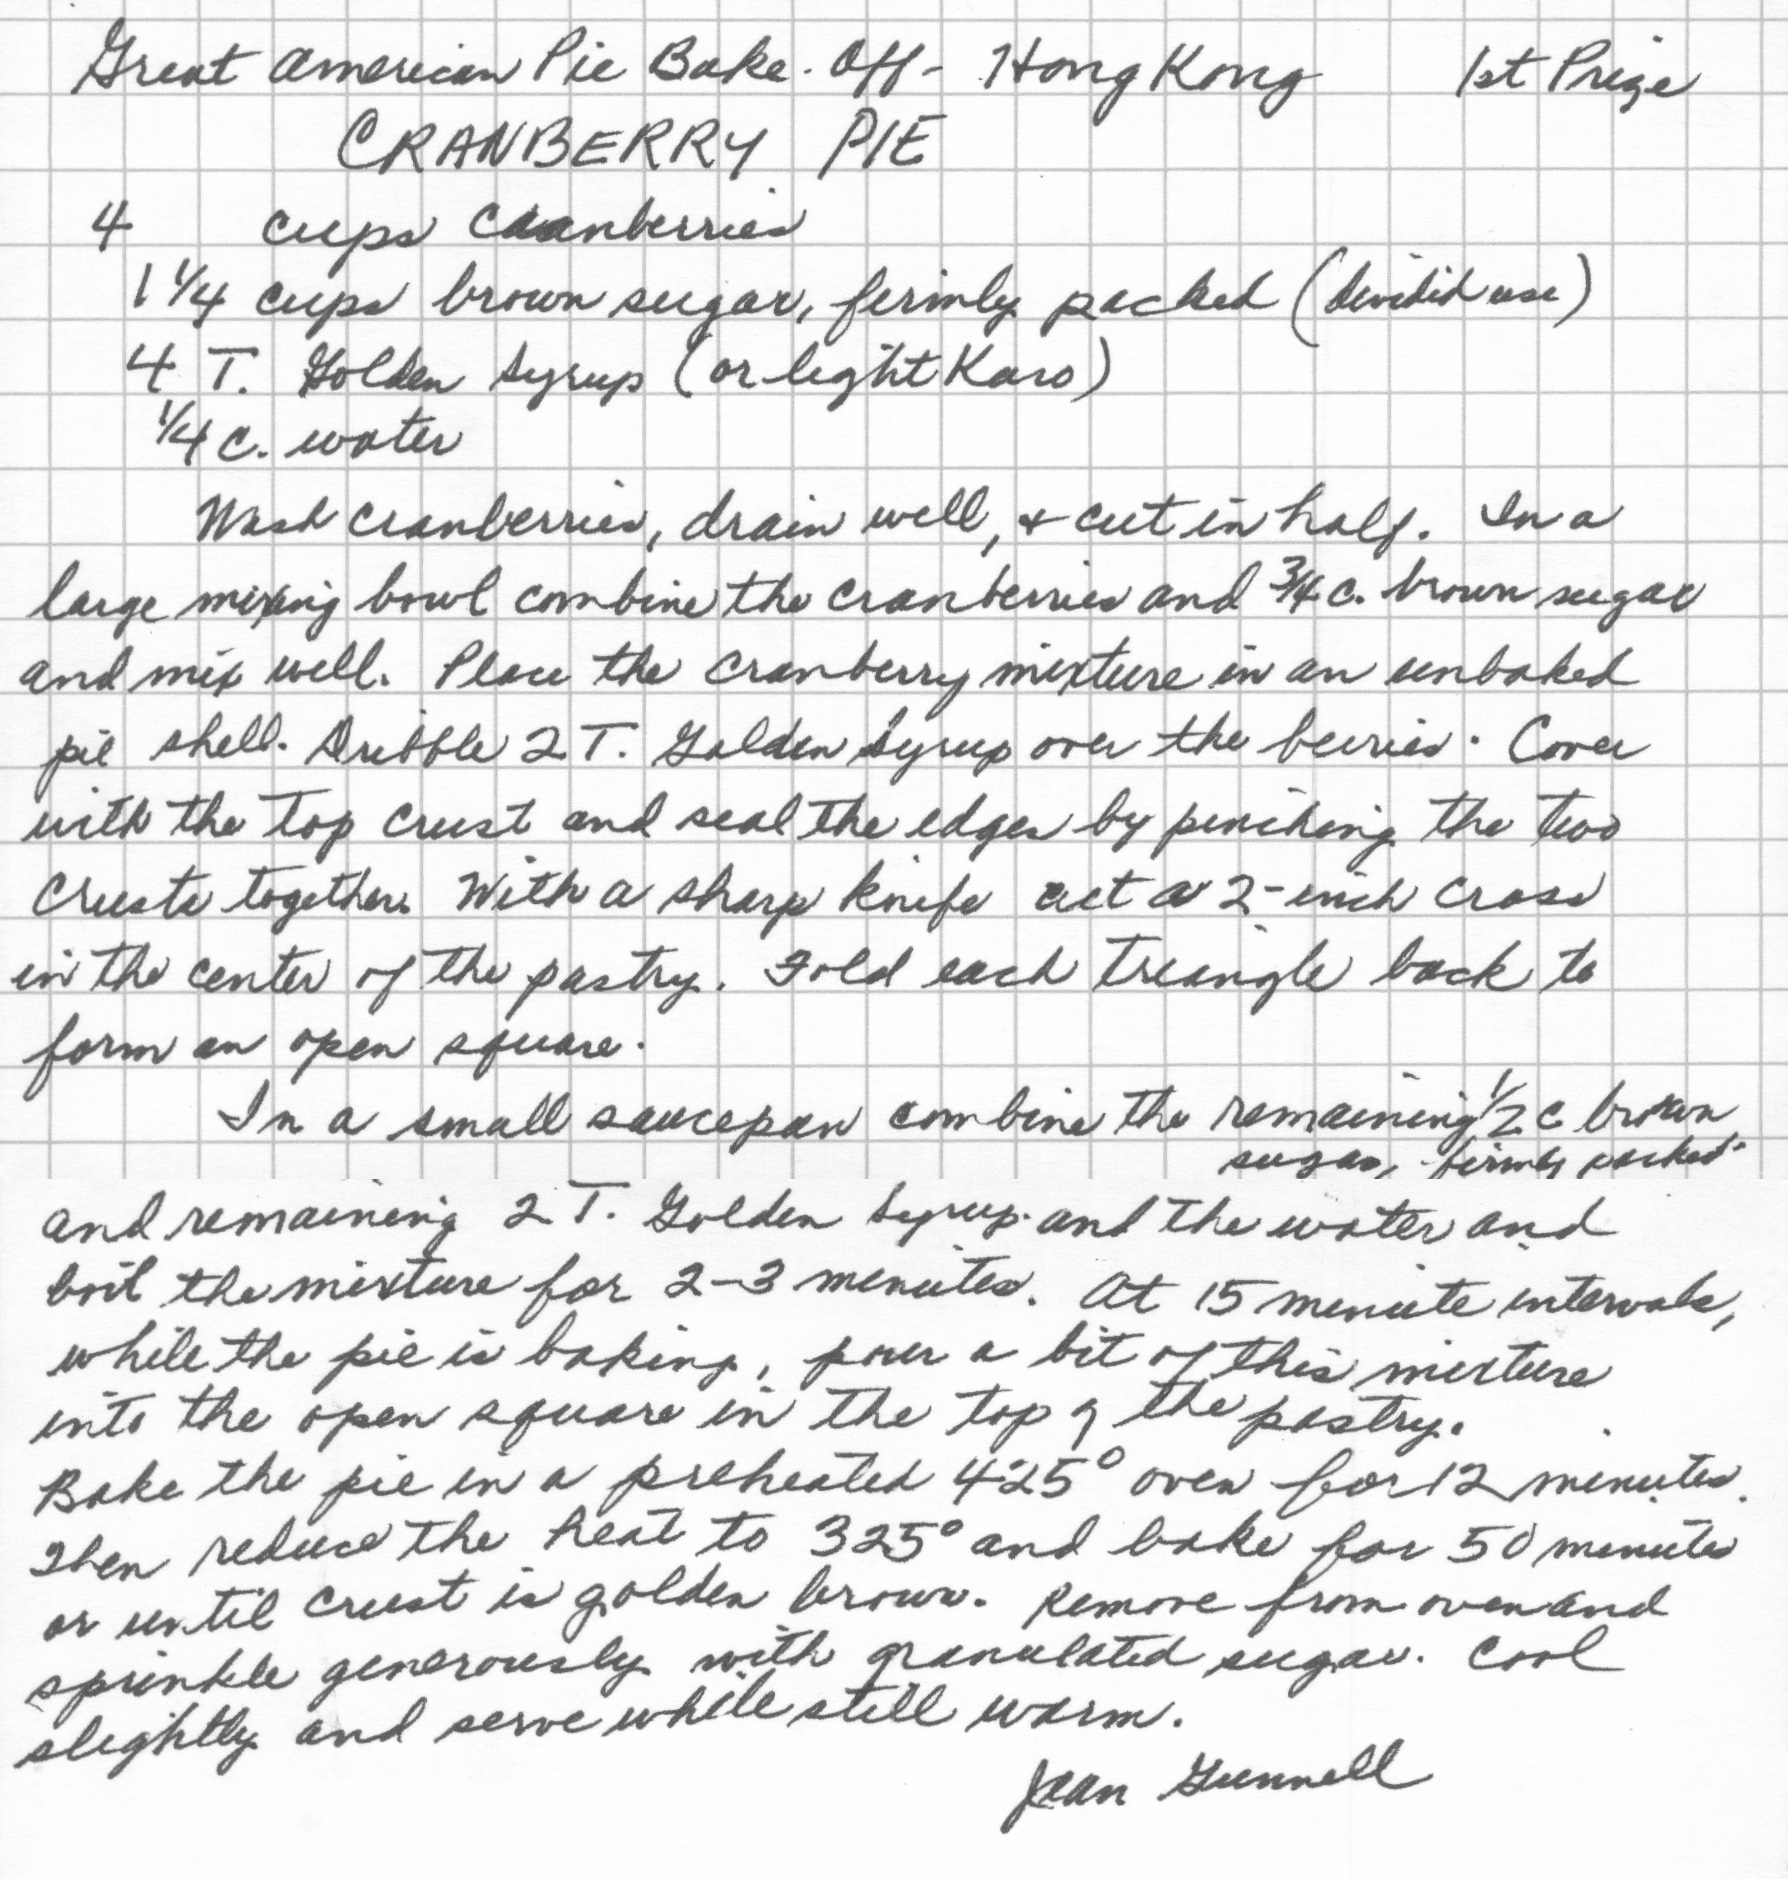 Great American Pie Bake-Off - Hong Kong 1st Prize
CRANBERRY PIE
4 cups cranberries
1 1/4 cups brown sugar, firmly packed (divided use)
4 T. Golden Syrup (or light Karo)
1/4 c. water
Wash cranberries, drain well, + cut in half. In a
large mixing bowl combine the cranberries and 3/4 c. brown sugar
and mix well. Place the cranberry mixture in an unbaked
pie shell. Dribble 2 T. Golden Syrup over the berries. Cover
with the top crust and seal the edges by pinching the two
crusts together. With a sharp knife cut a 2-inch cross
in the center of the pastry. Fold each triangle back to
form an open square.
In a small saucepan combine the remaining 1/2 c brown
sugar, firmly packed
and remaining 2 T. Golden Syrup and the water and
boil the mixture for 2-3 minutes. At 15 minute intervals,
while the pie is baking, pour a bit of this mixture
into the open square in the top of the pastry.
Bake the pie in a preheated 425° oven for 12 minutes.
Then reduce the heat to 325° and bake for 50 minutes
or until crust is golden brown. Remove from oven and
sprinkle generously with granulated sugar. Cool
slightly and serve while still warm.
Jean Gunnell